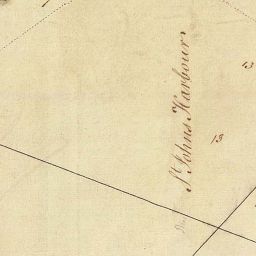 St Johns Harbour
43
13